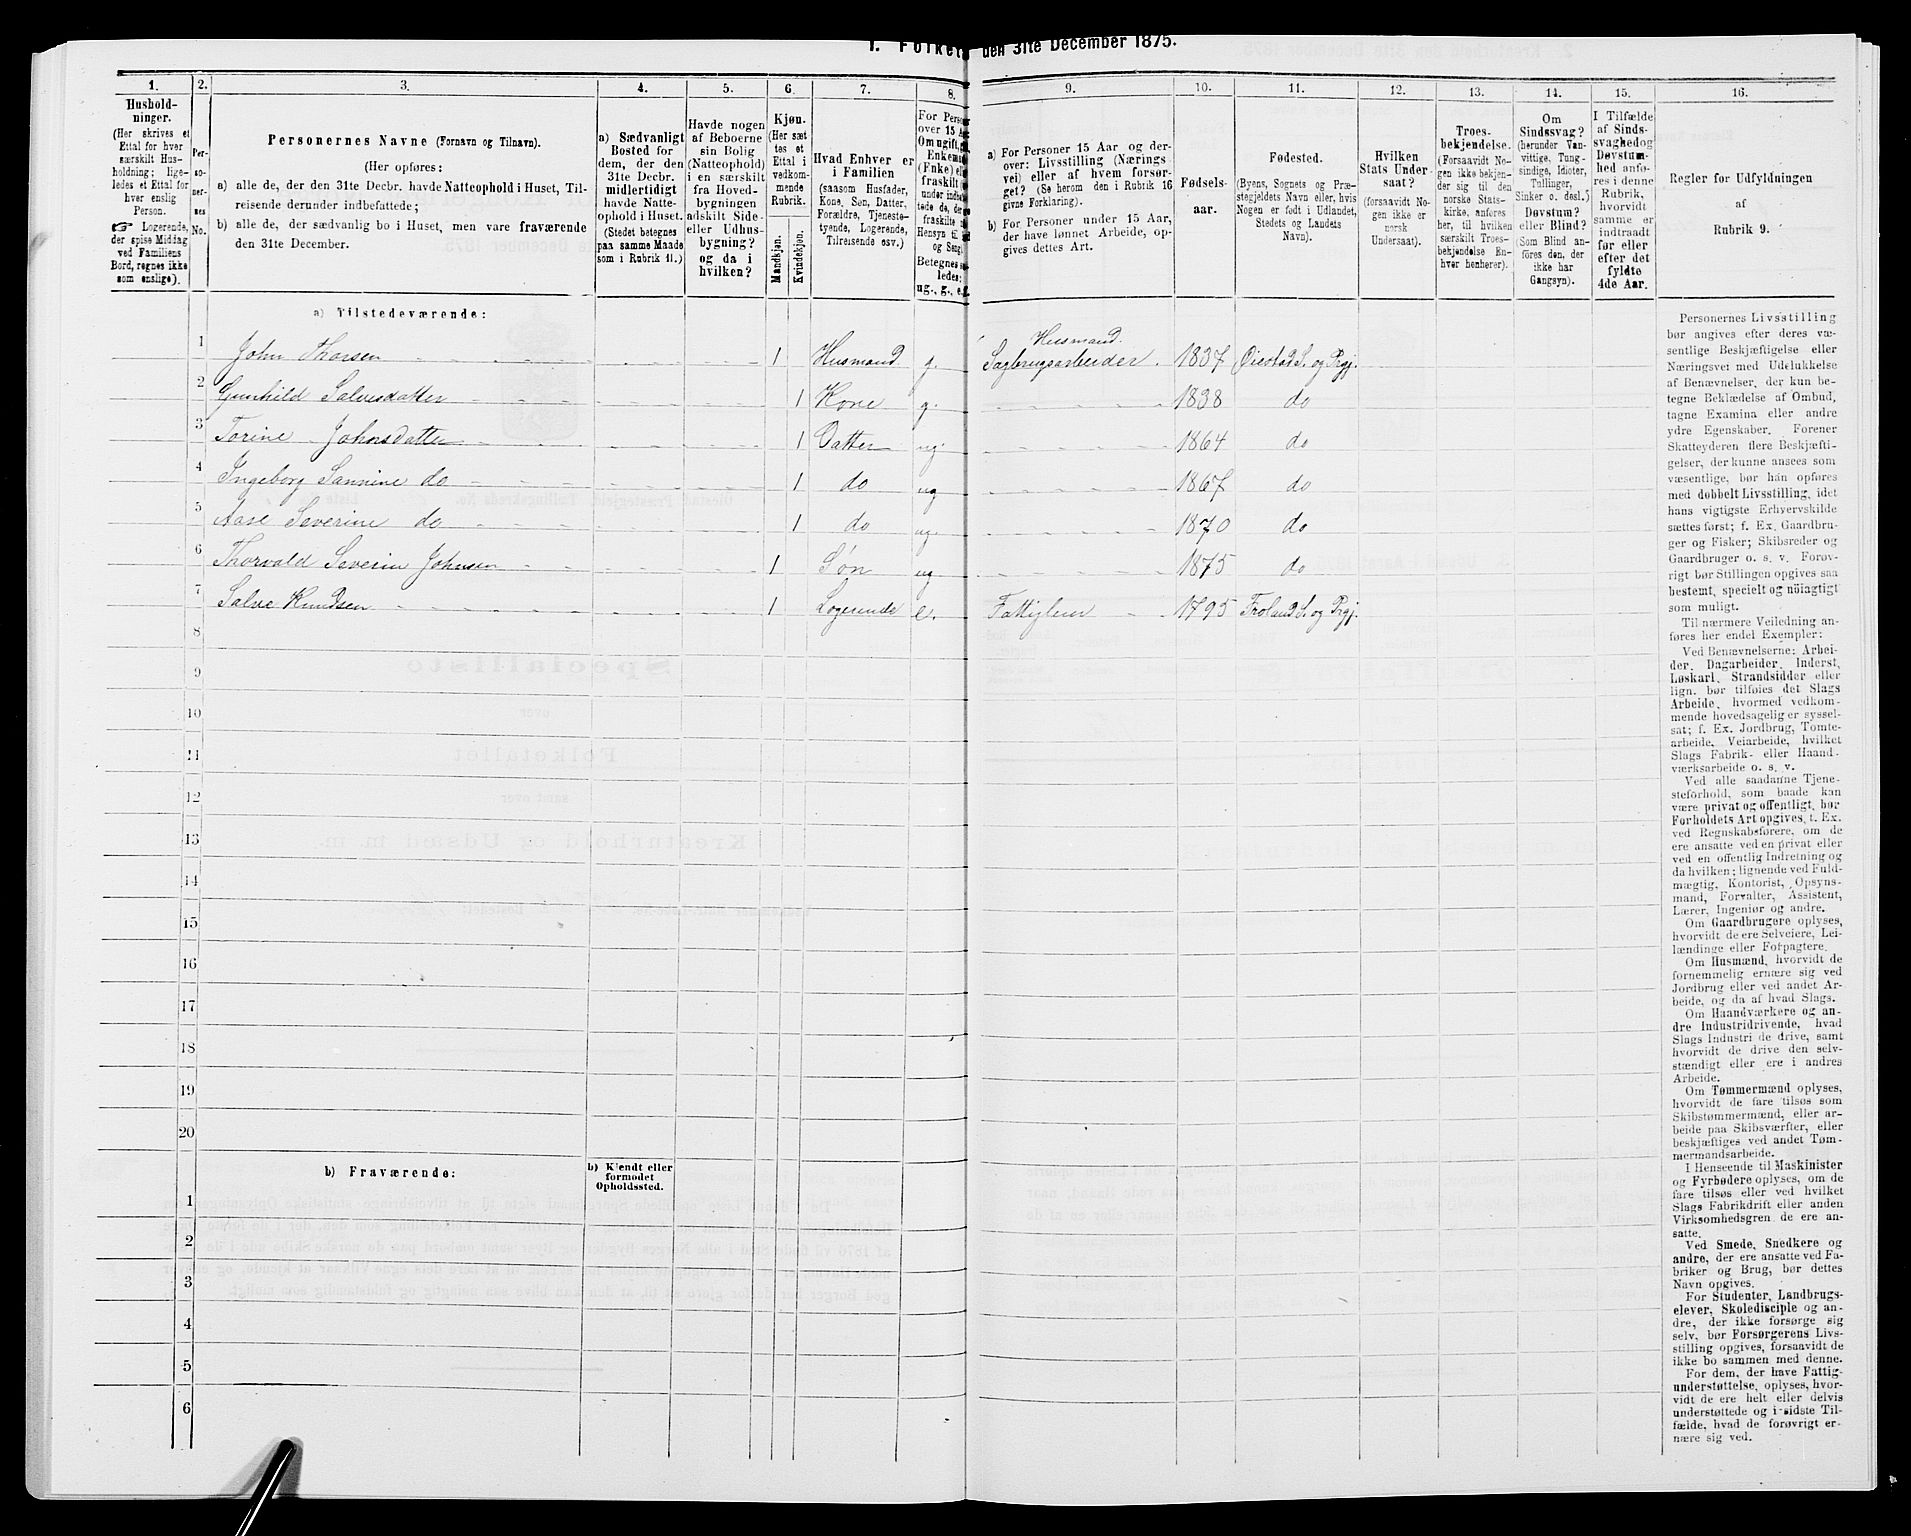 1. Folket den 31te December 1875.
1. 2. 3. 4. 5. 6. 7. 8. 9. 10. 11. 12. 13. 14. 15. 16.
Hushold-
ninger.
(Her skrives et
Ettal for hver
særskilt Hus-
holdning; lige-
ledes et Ettal for
hver enslig
Person.
☞ Logerende,
der spise Middag
ved Familiens
Bord, regnes ikke
som enslige).
Per-
so-
ner-
nes
No.
Personernes Navne (Fornavn og Tilnavn).
(Her opføres:
a) alle de, der den 31te Decbr. havde Natteophold i Huset, Til-
reisende derunder indbefattede;
b) alle de, der sædvanlig bo i Huset, men vare fraværende
den 31te December.
a) Sædvanligt
Bosted for
dem, der den
31te Decbr.
midlertidigt
havde Natte-
ophold i Huset.
(Stedet betegnes
paa samme Maade
som i Rubrik 11.)
Havde nogen
af Beboerne
sin Bolig
(Natteophold)
i en særskilt
fra Hoved-
bygningen
adskilt Side-
eller Udhus-
bygning?
og da i
hvilken?
Kjøn.
(Her sæt
tes et
Ettal i
vedkom-
mende
Rubrik.
Mandkjøn.
Kvindekjøn.
Hvad Enhver er
i Familien
(saasom Husfader,
Kone, Søn, Datter,
Forældre, Tjeneste-
tyende, Logerende,
Tilreisende osv.)
For Pers
over 15 A
Om ugift, g
Enkem
(Enke) el
fraskilt
under indbe
tede de, der
fraskilte
Hensyn til
og Seng
Betegnes s
ledes:
ug., g., e.
a) For Personer 15 Aar og der-
over: Livsstilling (Nærings
vei) eller af hvem forsør-
get? (Se herom den i Rubrik 16
givne Forklaring).
b) For Personer under 15 Aar,
der have lønnet Arbeide, op-
gives dettes Art.
Fødsels-
aar.
Fødested.
(Byens, Sognets og Præ-
stegjeldets Navn eller, hvis
Nogen er født i Udlandet,
Stedets og Landets
Navn).
Hvilken
Stats Under-
saat?
(forsaavidt No-
gen ikke er
norsk
Undersaat).
Troes-
bekjendelse.
(Forsaavidt No-
gen ikke bekjen-
der sig til den
norske Stats-
kirke, anføres
her, til hvilken
særskilt Troes-
bekjendelse En-
hver henhører).
Om
Sindssvag?
(herunder Van-
vittige, Tung-
sindige, Idioter,
Tullinger,
Sinker o. desl.)
Døvstum?
eller Blind?
(Som Blind an-
føres den, der
ikke har
Gangsyn).
I Tilfælde
af Sinds-
svaghed og
Døvstum-
hed anfø-
res i denne
Rubrik,
hvorvidt
samme er
indtraadt
før eller
efter det
fyldte
4de Aar.
Regler for Udfyldningen
af
Rubrik 9.
a) Tilstedeværende:
1 John Thorsen 1 Husmand g. Husmand. Sagbrugsarbeider. 1837 Øiestad S. og Prgj.
2 Gunhild Salvesdatter 1 Kone g. 1838 do
3 Torine Johnsdatter 1 Datter ug. 1864 do
4 Ingeborg Sannine do 1 do ug 1867 do
5 Aase Severine do 1 do ug. 1870 do
6 Thorvald Severin Johnsen 1 Søn ug 1875 do
7 Salve Knudsen 1 Logerende e. Fattiglem 1795 Froland S. og Prgj.
8
9
10
11
12
13
14
15
16
17
18
19
20
b) Fraværende:
b) Kjendt eller
formodet
Opholdssted.
1
2
3
4
5
6
Personernes Livsstilling
bør angives efter deres væ-
sentlige Beskjæftigelse eller
Næringsvei med Udelukkelse
af Benævnelser, der kun be-
tegne Beklædelse af Ombud,
tagne Examina eller andre
ydre Egenskaber. Forener
Skatteyderen flere Beskjæfti-
gelser, der kunne ansees som
væsentlige, bør han opføres
med dobbelt Livsstilling, idet
hans vigtigste Erhvervskilde
sættes først; f. Ex. Gaardbru-
ger og Fisker; Skibsreder og
Gaardbruger o. s. v. Forøv-
rigt bør Stillingen opgives saa
bestemt, specielt og nöiagtigt
som muligt.
Til nærmere Veiledning an-
føres her endel Exempler:
Ved Benævnelserne: Arbei-
der, Dagarbeider, Inderst,
Løskarl, Strandsidder eller
lign. bør tilføies det Slags
Arbeide, hvormed vedkom-
mende hovedsagelig er syssel-
sat; f. Ex. Jordbrug, Tomte-
arbeide, Veiarbeide, hvilket
Slags Fabrik- eller Haand-
værksarbeide o. s. v.
Ved alle saadanne Tjene-
steforhold, som baade kan
være privat og offentligt, bør
Forholdets Art opgives, t. Ex.
ved Regnskabsførere, om de
ere ansatte ved en privat eller
ved en offentlig Indretning og
da hvilken; lignende ved Fuld-
mægtig, Kontorist, Opsyns-
mand, Forvalter, Assistent,
Lærer, Ingeniør og andre.
Om Gaardbrugere oplyses,
hvorvidt de ere Selveiere, Lei-
lændinge eller Forpagtere.
Om Husmænd, hvorvidt de
fornemmelig ernære sig ved
Jordbrug eller ved andet Ar-
beide, og da af hvad Slags.
Om Haandværkere og an-
dre Industridrivende, hvad
Slags Industri de drive, samt
hvorvidt de drive den selv-
stændigt eller ere i andres
Arbeide.
Om Tømmermænd oplyses,
hvorvidt de fare tilsøs som
Skibstømmermænd, eller ar-
beide paa Skibsværfter, eller
beskjæftiges ved andet Tøm-
mermandsarbeide.
I Henseende til Maskinister
og Fyrbødere oplyses, om de
fare tilsøs eller ved hvilket
Slags Fabrikdrift eller anden
Virksomhedsgren de ere an-
satte.
Ved Smede, Snedkere og
andre, der ere ansatte ved Fa-
briker og Brug, bør dettes
Navn opgives.
For Studenter, Landbrugs-
elever, Skoledisciple og an-
dre, der ikke forsørge sig
selv, bør Forsørgerens Livs-
stilling opgives, forsaavidt de
ikke bo sammen med denne.
For dem, der have Fattig-
understøttelse, oplyses, hvor-
vidt de ere helt eller delvis
understøttede og i sidste Til-
fælde, hvad de forøvrigt er-
nære sig ved.